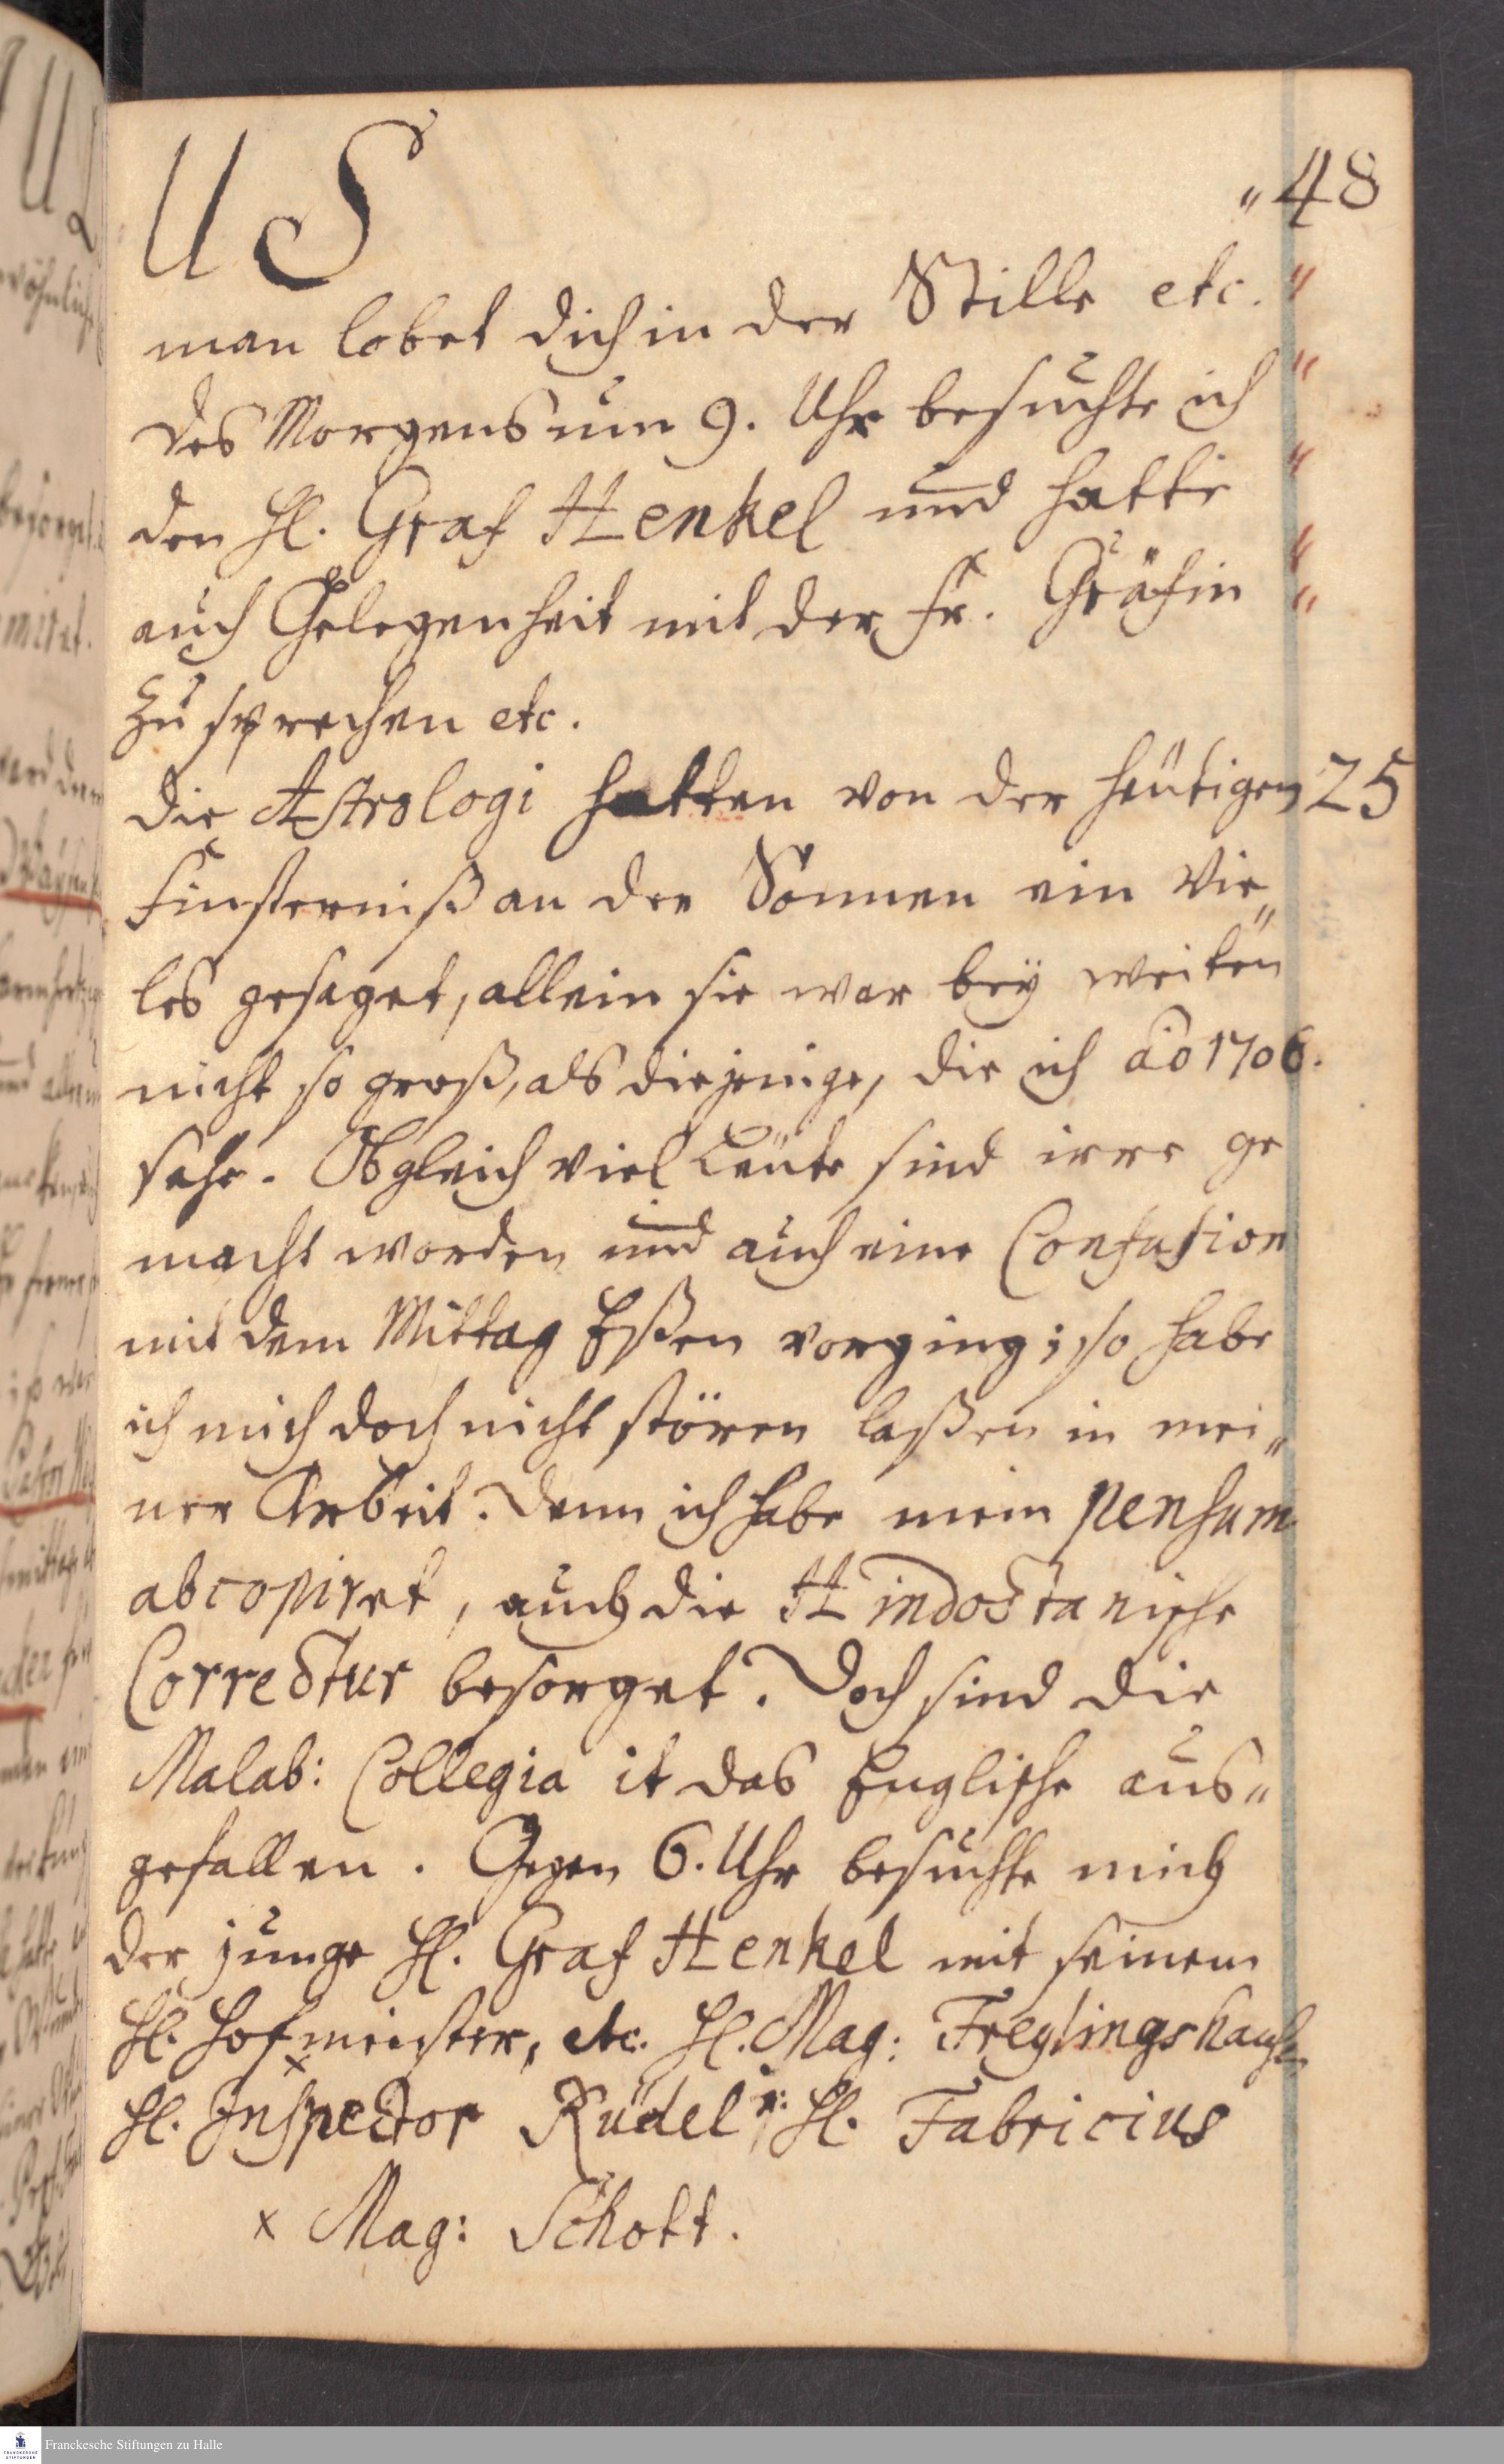 U S
„ 48
man lobet dich in der Stille etc.
des Morgens um 9. Uhr besuchte ich
den H. Graf Henkel und hatte
auch Gelegenheit mit der Fr. Gräfin
zu sprechen etc.
die Astrologi hatten von der heutigen 25
Finsterniß an der Sonnen ein vie„
les gesaget, allein sie war bey weiten
nicht so groß, als diejenige, die ich ao 1706.
sahe. Obgleich viel Leute sind irre ge
macht worden und auch eine Confusion
mit dem Mittag Eßen vorging; so habe
ich mich doch nicht stören laßen in mei„
ner Arbeit. denn ich habe mein pensum
abcopiret, auch die Hindostanische
Correctur besorget. Doch sind die
Malab: Collegia it das Englische aus„
gefallen. Gegen 6. Uhr besuchte mich
der junge H. Graf Henkel mit seinem
H. Hofmeister, etc. H. Mag: Freylingshausen
H. Inspector Rüdel H. Fabricius
x Mag: Schott.
Franckesche Stiftungen zu Halle